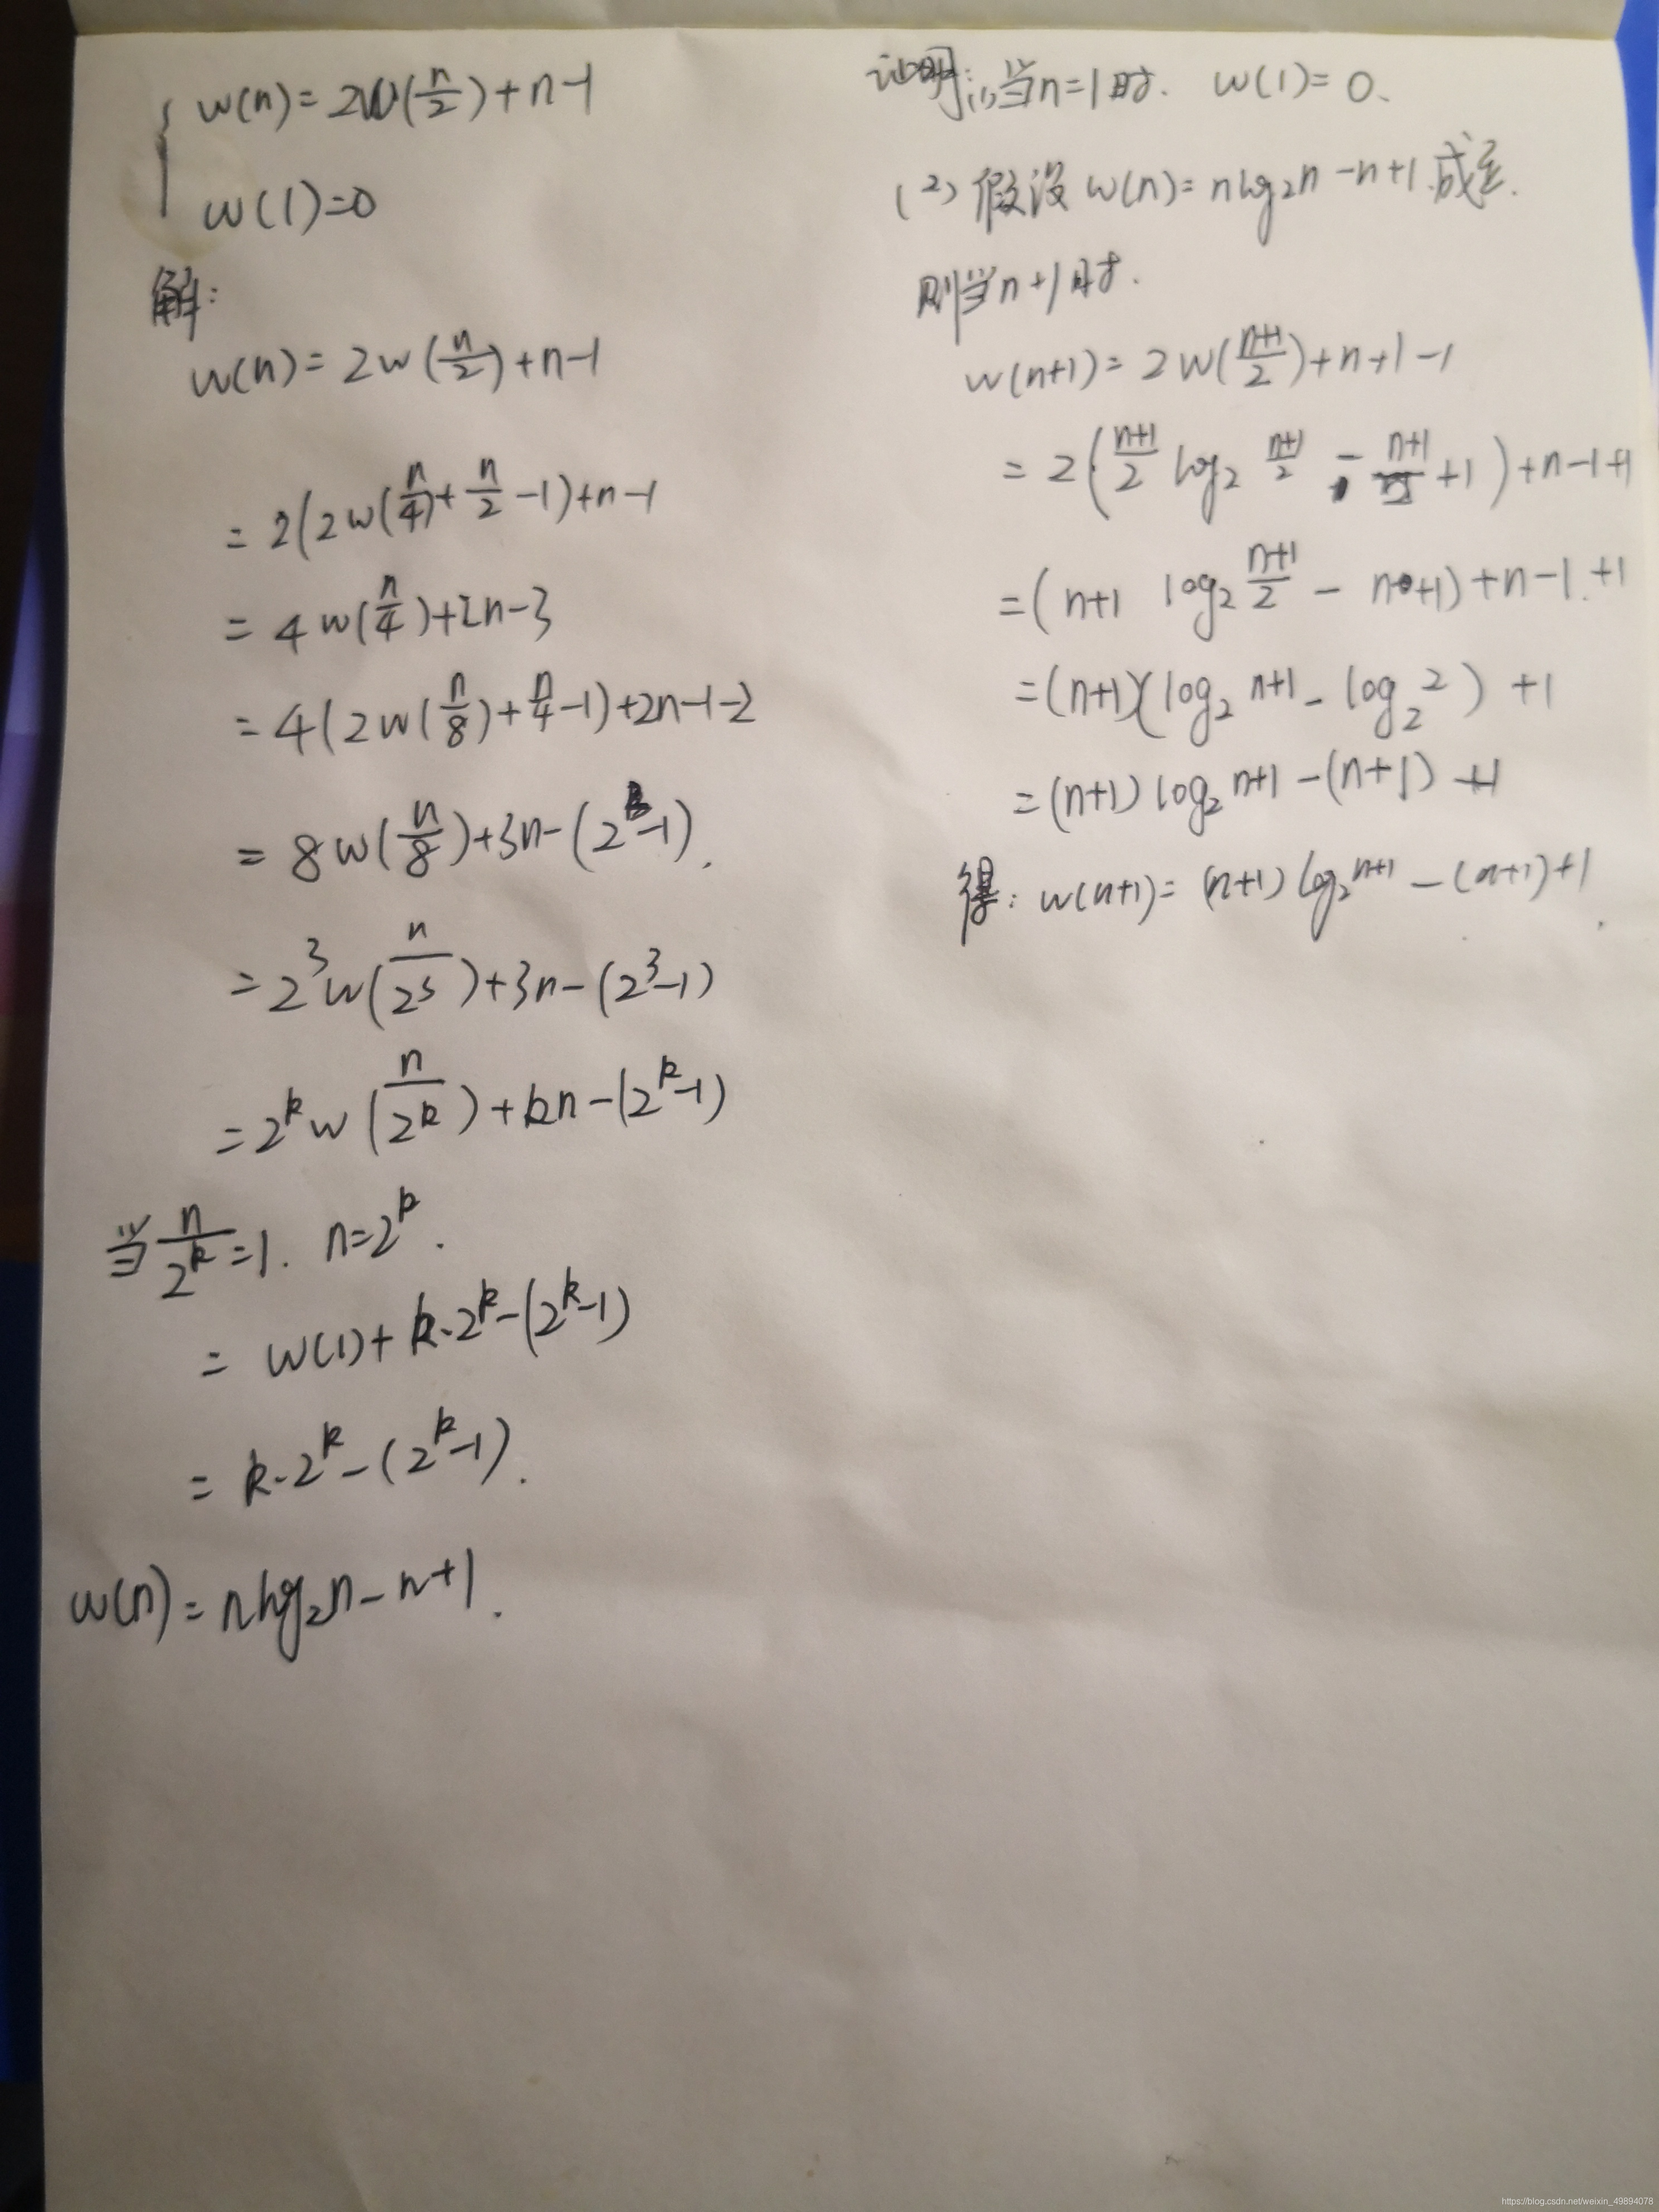 w(n)=2W(n/2)+n-1
w(1)=0
解:
w(n)=2w(n/2)+n-1
=2(2w(n/4)+n/2-1)+n-1
=4w(n/4)+2n-3
=4(2w(n/8)+n/4-1)+2n-1-2
=8w(n/8)+3n-(2^3-1).
=2^3w(n/2^3)+3n-(2^3-1)
=2^k w(n/2^k)+kn-(2^k-1)
当n/2^k=1. n=2^k.
=w(1)+k·2^k-(2^k-1)
=k·2^k-(2^k-1).
w(n)=nlog₂n-n+1.
证明:(1)当n=1时. w(1)=0.
(2)假设w(n)=nlog₂n-n+1.成立.
则当n+1时.
w(n+1)=2w((n+1)/2)+n+1-1
=2((n+1)/2 log₂ (n+1)/2 - (n+1)/2 +1)+n-1+1
=(n+1 log₂ (n+1)/2 - n+1)+n-1+1
=(n+1)(log₂ n+1 - log₂ 2)+1
=(n+1)log₂ n+1 -(n+1)+1
得:w(n+1)=(n+1)log₂ n+1 -(n+1)+1.
https://blog.csdn.net/weixin_49894078